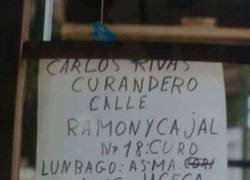 CARLOS RIVAS
CURANDERO
CALLE
RAMONYCAJAL
Nº 18: CURO
LUNBAGO: ASMA